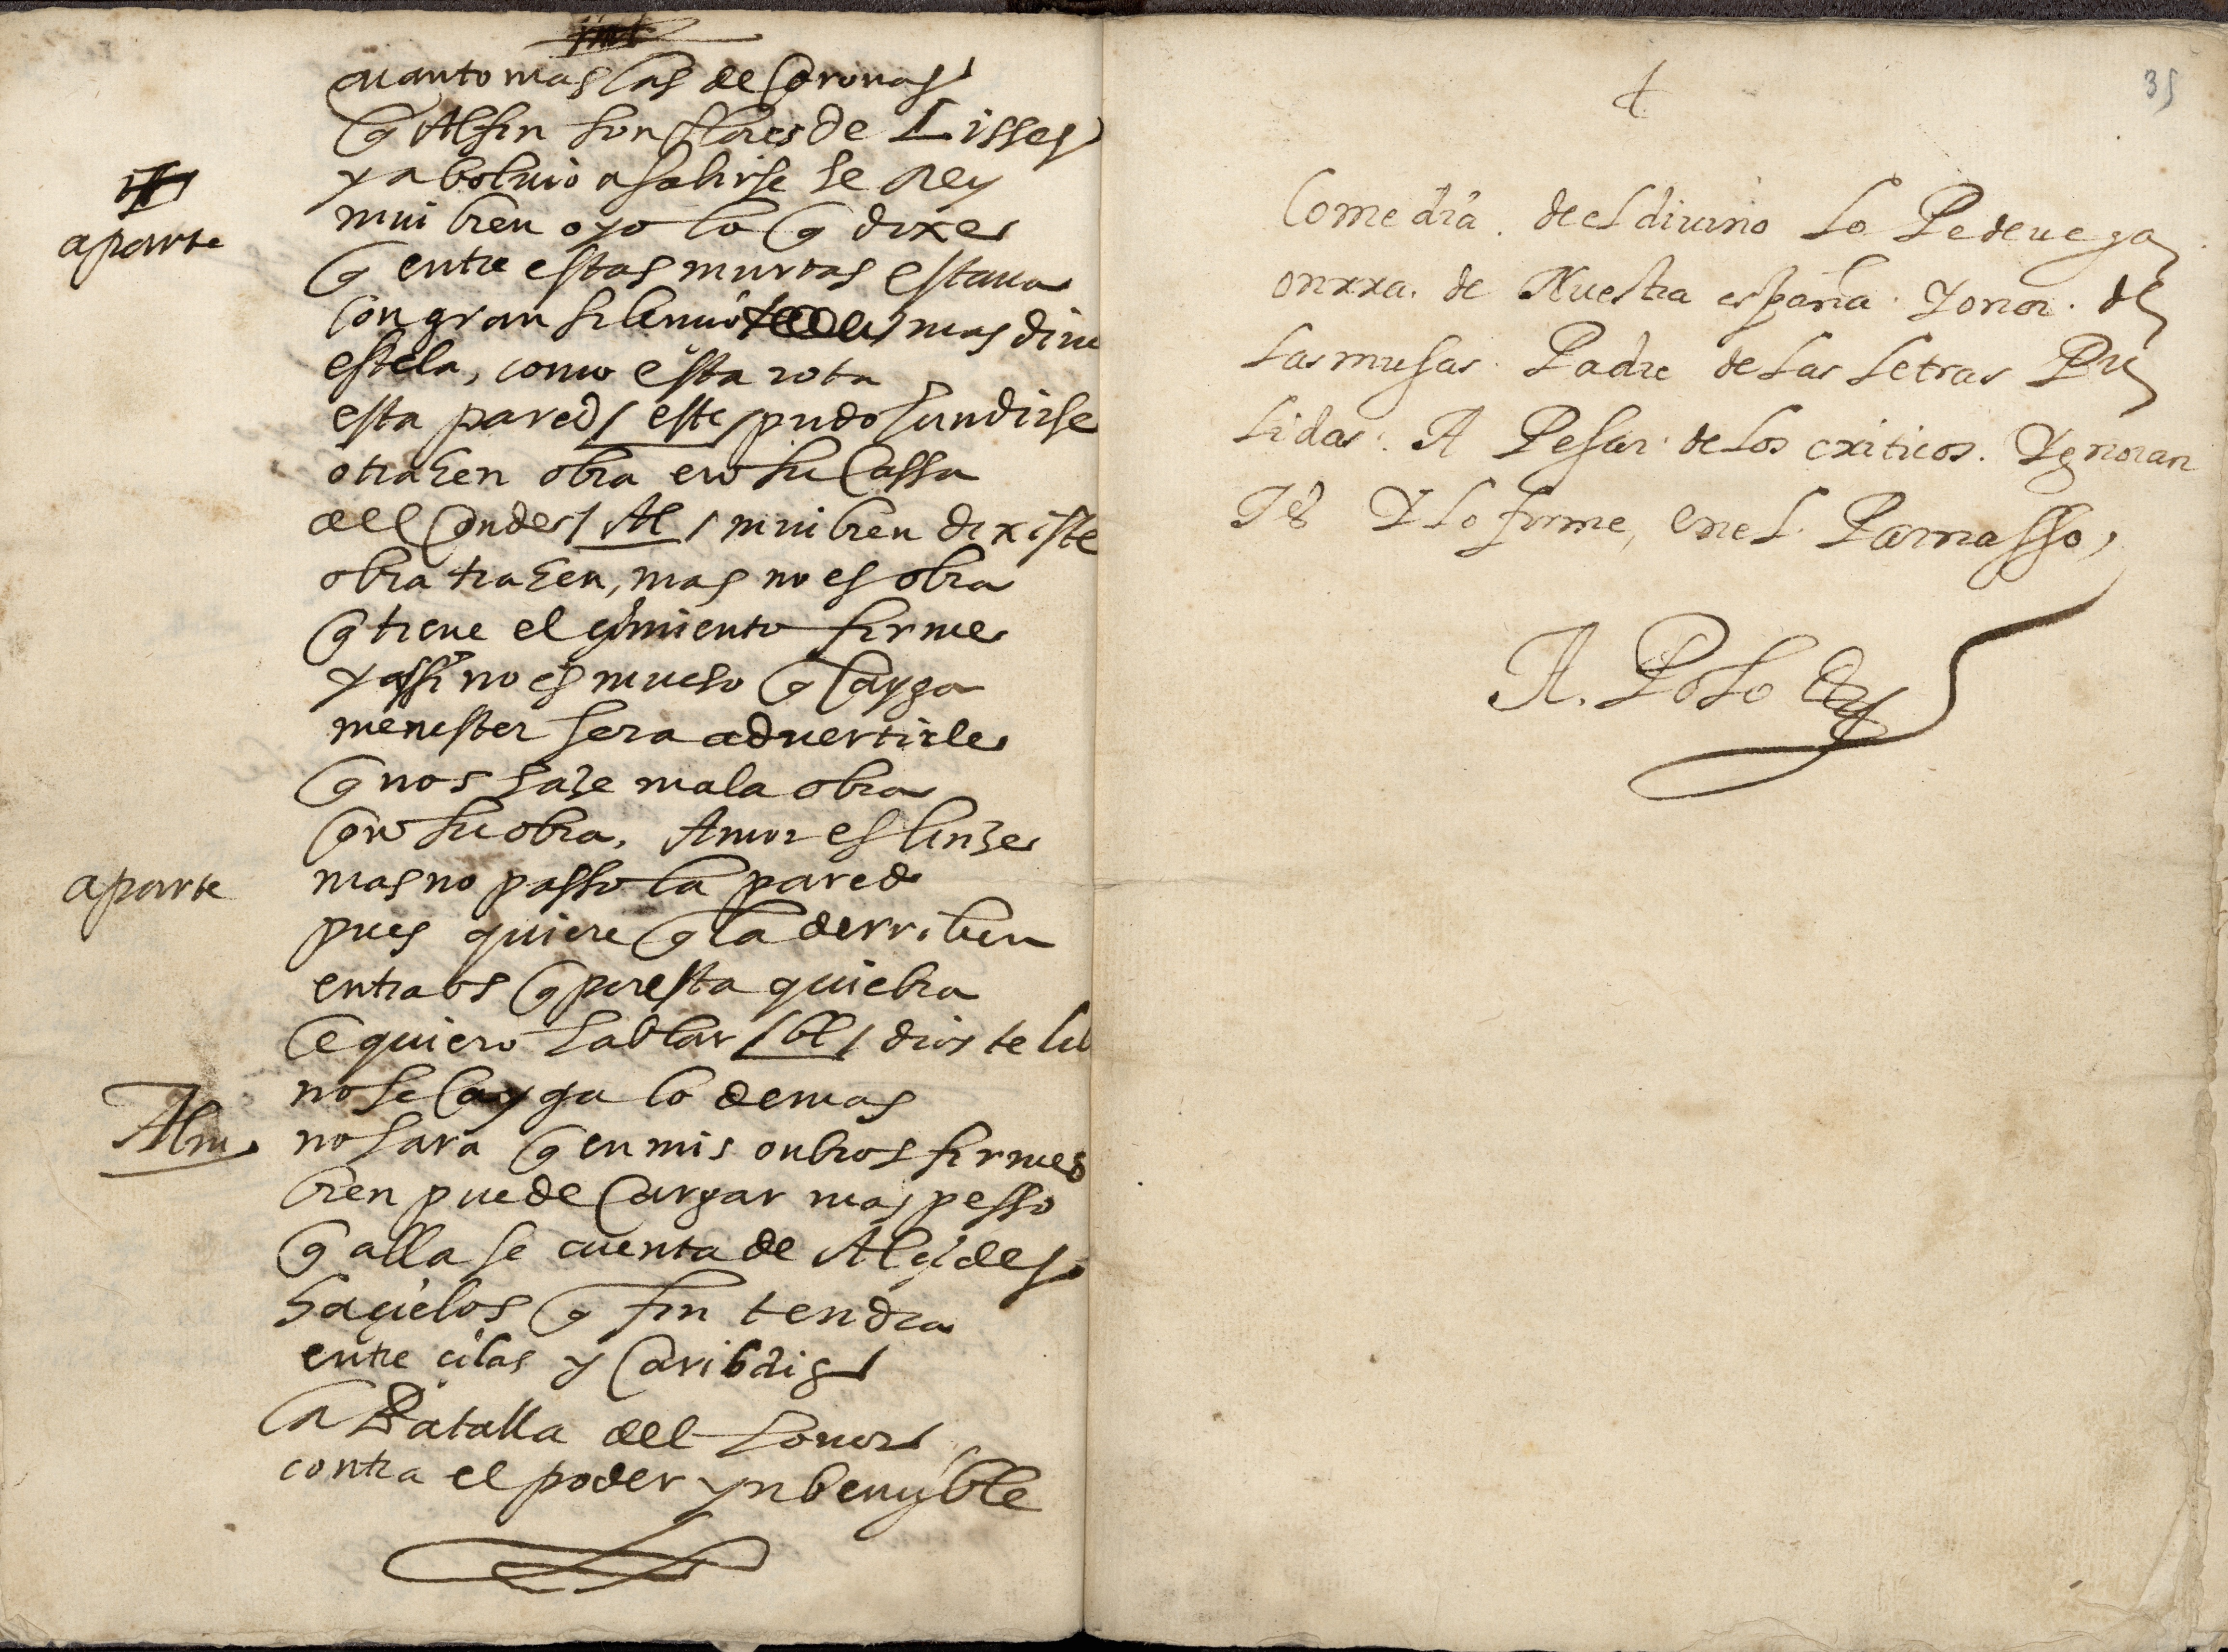 quanto mas las de coronas
q Alfin son flores de Lisses
ya bolvio a salirse se Rey
aparte
mui bien oyo lo q dixe
q entre estas murtas estava
con gran silencio mas dime
estela, como esta rota
esta pared / este / pudo hundirse
otra hen obra en su cassa
del Conde / Al / mui bien dixiste
obra trahen, mas no es obra
q tiene el çimiento firme
y assi no es mucho q Cayga
menester sera advertirle
q nos haze mala obra
con su obra, Amor es linze
aparte
mas no passo la pared
pues quiere q la derriben
entraos q por esta quiebra
le quiero hablar / bl / dios te lib
no se Cayga lo demas
Alm
no hara q en mis onbros firmes
bien puede Cargar mas pesso
q alla se cuenta de Alçides
ha çielos q fin tendra
entre çilas y Caribdis
la Batalla del honor
contra el poder ynbençyble
35
Comedia. de el divino Lo Pe de vega
onrra. de Nuestra españa. Y onor. de
Las musas. Padre de Las Letras Pu
Lidas. A Pesar de Los criticos. Ygnoran
Tes Y Lo firme, en eL Parnasso,
A. PoLo